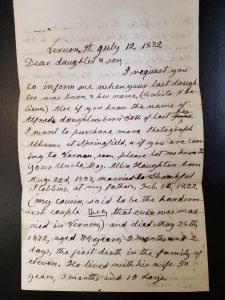 Vernon, Vt. July 12, 1872.
Dear daughter & son
I request you
to inform me when your last daugh-
ter was born, & her name, (
lieves) Also if you know the name of
Alfreds daughter, born 30th of last
I want to purchase more Photograph
Albums at Springfield, & if you are com-
ing to Vernon, soon, please let me know it.
Your Uncle, Maj. Allin Houghton born
Aug. 22d 1797, married to Thankful
Stebbins, at my father's, Feb. 5th, 1822
(my cousin, said to be the handsom-
est couple then that ever was mar-
ried in Vernon) and died May 24th
1872, aged 74 years, 9 months and 2
days, the first death in the family of
eleven. He lived with his wife 50
years, 3 months and 19 days.